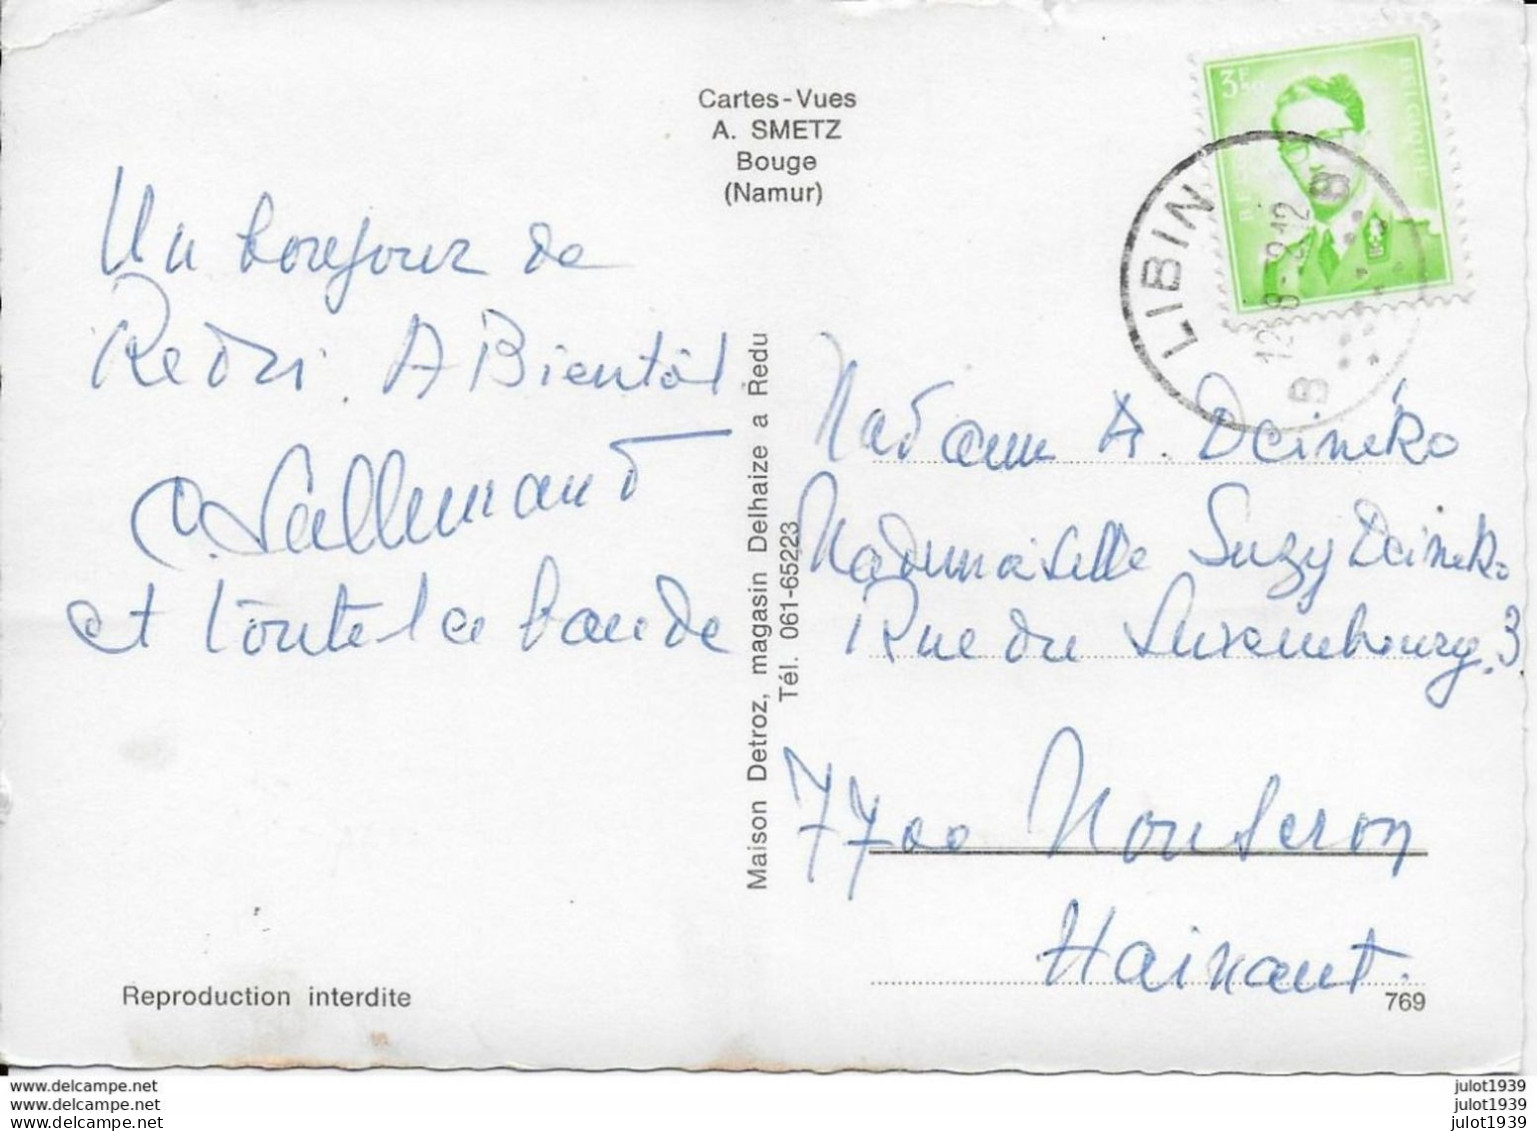 Cartes-Vues
A. SMETZ
Bouge
(Namur)
3F50
BELGIQUE
LIBIN
B
Un bonjour de
Redu. A Bientôt
C. Lallemand
et toute la bande
Maison Detroz, magasin Delhaize a Redu
Tél. 061-65223
Madame A. Deineko
Mademoiselle Suzy Deineko
Rue du Luxembourg, 3
7700 Mouscron
Hainaut.
Reproduction interdite
769
www.delcampe.net
www.delcampe.net
www.delcampe.net
julot1939
julot1939
julot1939